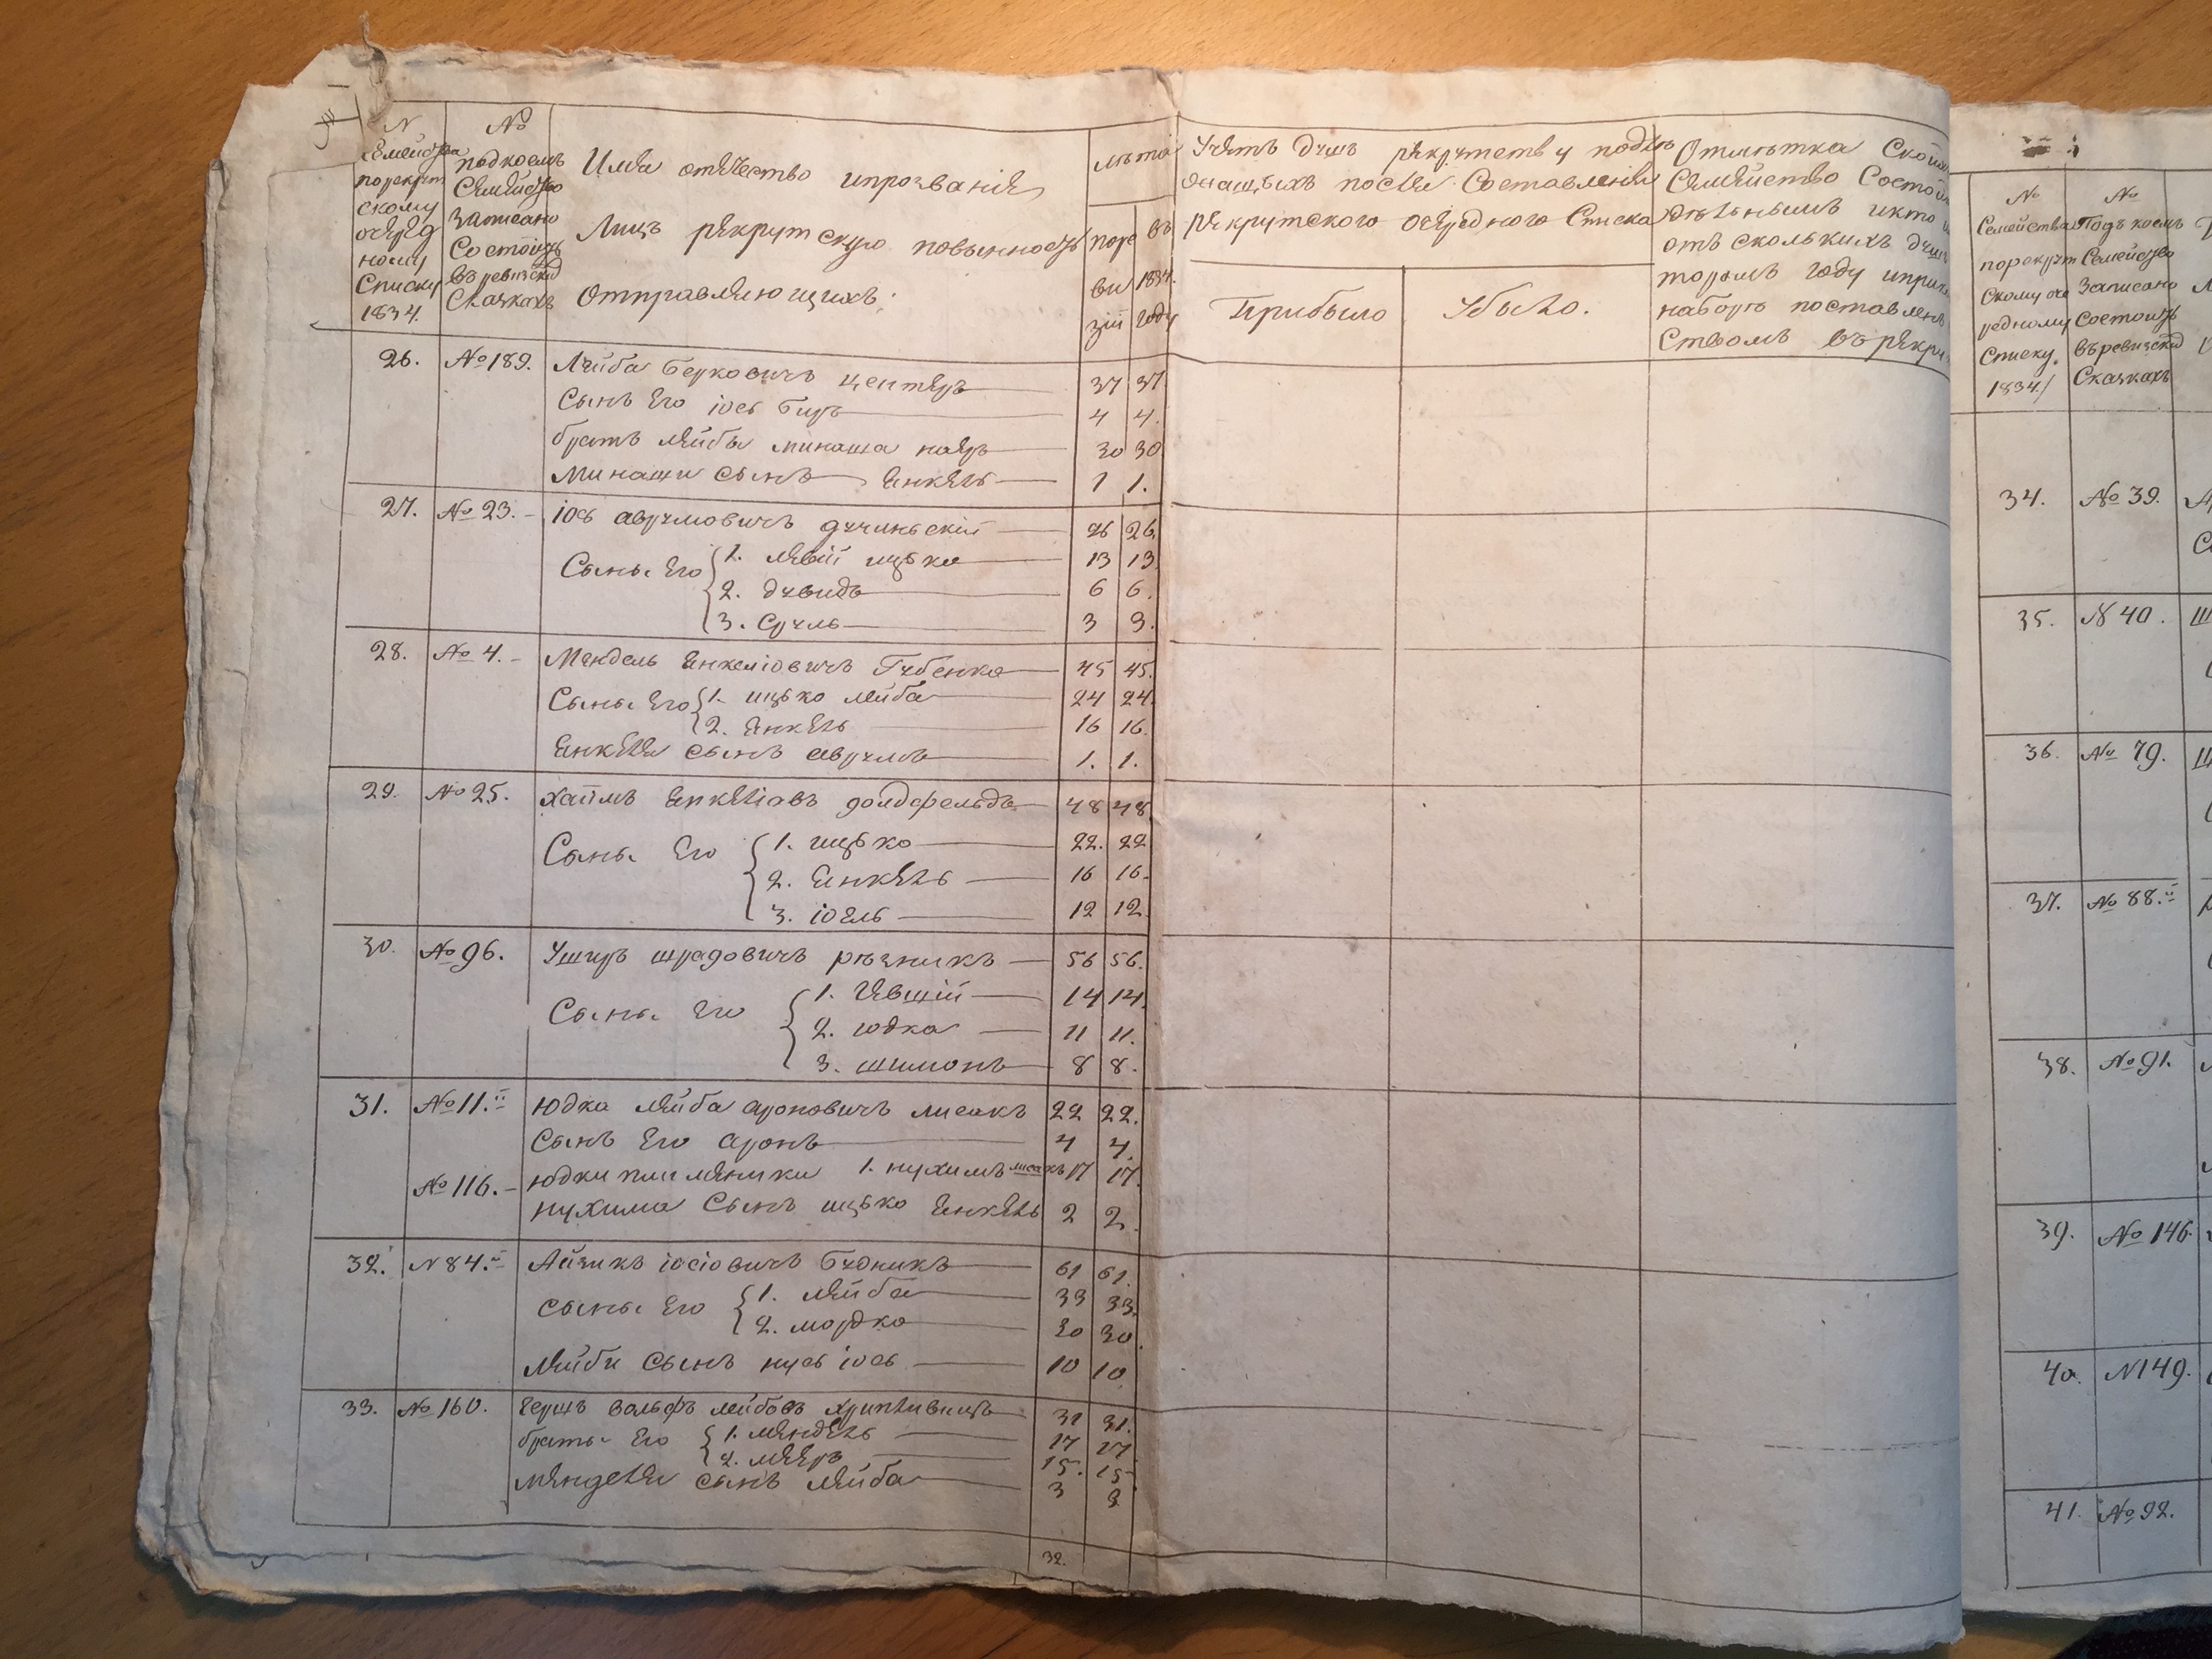 N
Семейства
порекрут
скому
очеред
ному
Списку
1834.
№
подкоемъ
Семейство
записано
Состоитъ
въ ревизскихъ
Сказкахъ
Имя отчество ипрозвание
Лицъ рекрутскую повынность
Отправляющихъ.
лѣта
поре
ви
зіи
въ
1834.
году
Учетъ душъ рекрутств у подле
рекрутского очередного Списка
Прибыло
Убыло.
Отмѣтка
Семейство Состои
икто
отъ сколькихъ душ
торомъ году ипри
наборѣ поставлен
Ством въ рекру
26. №189. Лейба Берковичъ центеръ 37 37.
Сынъ Его іось Биръ 4 4.
братъ лейбы минаша 30 30
Минаши сынъ Енкель 1 1.
27. №23. іось аврумовичъ дучиньскій 26 26.
Сыны Его 1. ицько 13 13.
2. дувидъ 6 6.
3. Сруль 3 3.
28. №4. Мендель Енкеліовичъ Губенко 45 45.
Сыны Его 1. ицько лейба 24 24.
2. Енкель 16 16.
Енкеля сынъ аврумъ 1. 1.
29. №25. хаимъ Енкеліовъ долдфельдъ 48 48.
Сыны Его 1. ицько 22. 22
2. Енкель 16 16.
3. іоель 12 12.
30. №96. Ушеръ шрадовичъ рѣзникъ 56 56.
Сыны Его 1. 14 14.
2. юдка 11 11.
3. шимонъ 8 8.
31. №11. Юдка лейба ароновичъ лисакъ 22 22.
Сынъ Его аронъ 4 4.
№116. юдки племяники 1. нухимъ лисакъ 17 17.
нухима Сынъ ицько Енкель 2 2.
32. N84. Айзикъ іосіовичъ Будникъ 61 61.
сыны Его 1. лейба 33 33.
2. мордко 30 30
лейби сынъ нусь іось 10 10
33. №160. Гершъ вольфъ лейбовъ 31 31.
браты Его 1. мендель 17 17
2. мееръ 15. 15
менделя сынъ лейба 3 3
32.
№
Семейства
порекрут
Скому оче
редному
Списку.
1834./
№
Подъ коемъ
Семейство
Записано
Состоитъ
въ ревизскихъ
Сказкахъ
34. №39.
35. N40.
36. №79.
37. №88.
38. №91.
39. №146.
40. N149.
41. №92.